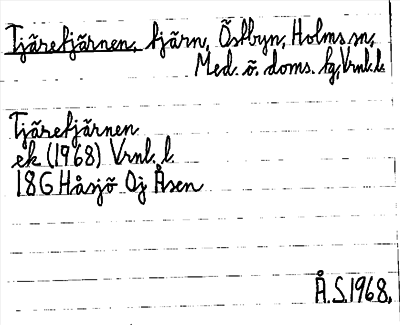 Tjäretjärnen, tjärn, Östbyn, Holms sn,
Med. ö. doms. tg, Vrnl. l.
Tjäretjärnen
ek (1968) Vrnl. l.
18G Håsjö Oj Åsen
Å.S. 1968.